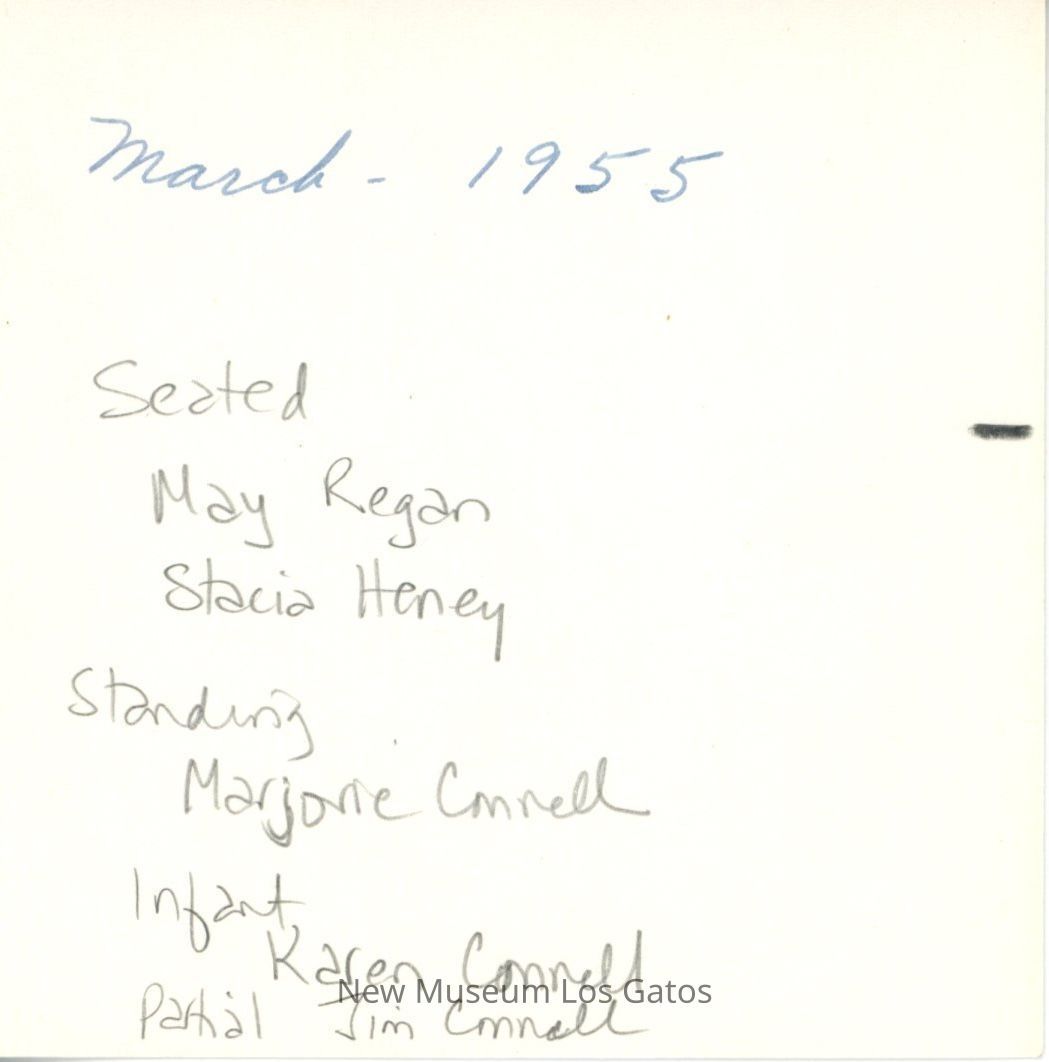 March - 1955
Seated
May Regan
Stacia Heney
Standing
Marjorie Connell
Infant
Karen Connell
New Museum Los Gatos
Partial Jim Connell